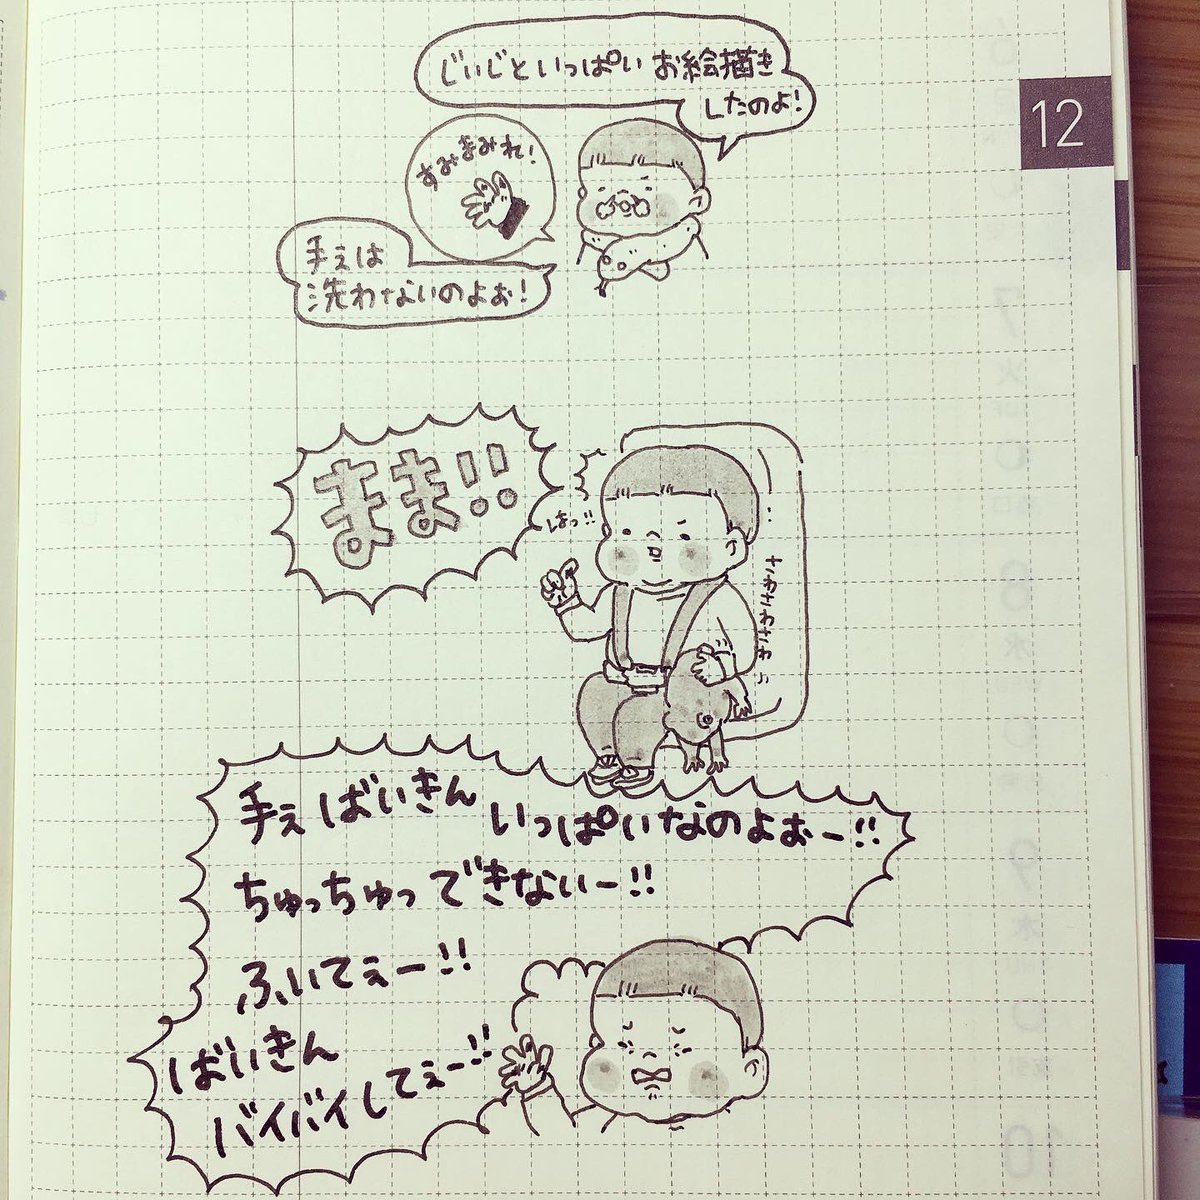 じぃじといっぱいお絵描き
したのよ!
すみまみれ!
手ぇは
洗わないのよぉ!
12
まま!!
はっ!!
さわさわさわさわ
手ぇばいきん
いっぱいなのよぉー!!
ちゅっちゅっできないー!!
ふいてぇー!!
ばいきん
バイバイしてぇー!!